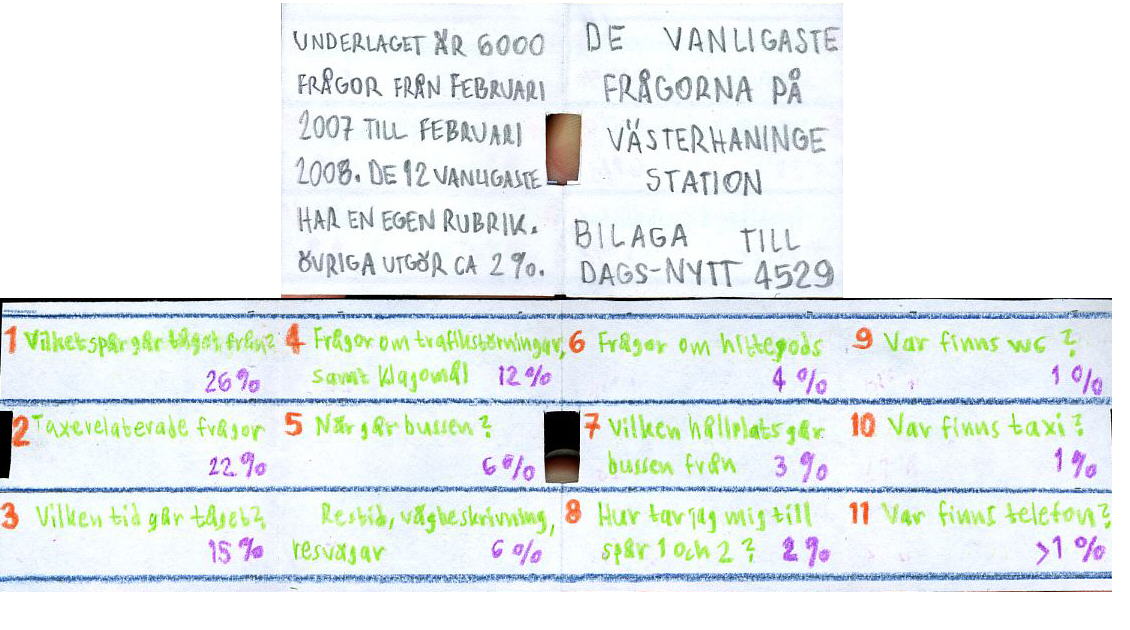 UNDERLAGET ÄR 6000
FRÅGOR FRÅN FEBRUARI
2007 TILL FEBRUARI
2008. DE 12 VANLIGASTE
HAR EN EGEN RUBRIK.
ÖVRIGA UTGÖR CA 2%.
DE VANLIGASTE
FRÅGORNA PÅ
VÄSTERHANINGE
STATION
BILAGA TILL
DAGS-NYTT 4529
1 Vilket spår går tåget från?
26%
2 Taxerelaterade frågor
22%
3 Vilken tid går tåget?
15%
4 Frågor om trafikstörningar,
samt klagomål 12%
5 När går bussen?
6%
Restid, vägbeskrivning,
resvägar 6%
6 Frågor om hittegods
4%
7 Vilken hållplats går
bussen från 3%
8 Hur tar jag mig till
spår 1 och 2? 2%
9 Var finns wc?
1%
10 Var finns taxi?
1%
11 Var finns telefon?
>1%